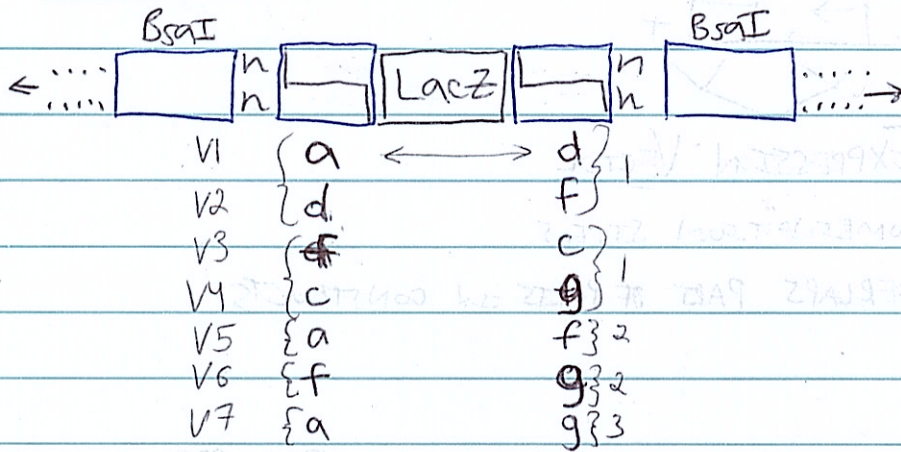 BsaI BsaI
n n
LacZ
n n
V1 { a ↔ d } 1
V2 d f
V3 { f c } 1
V4 c g
V5 { a f } 2
V6 { f g } 2
V7 { a g } 3